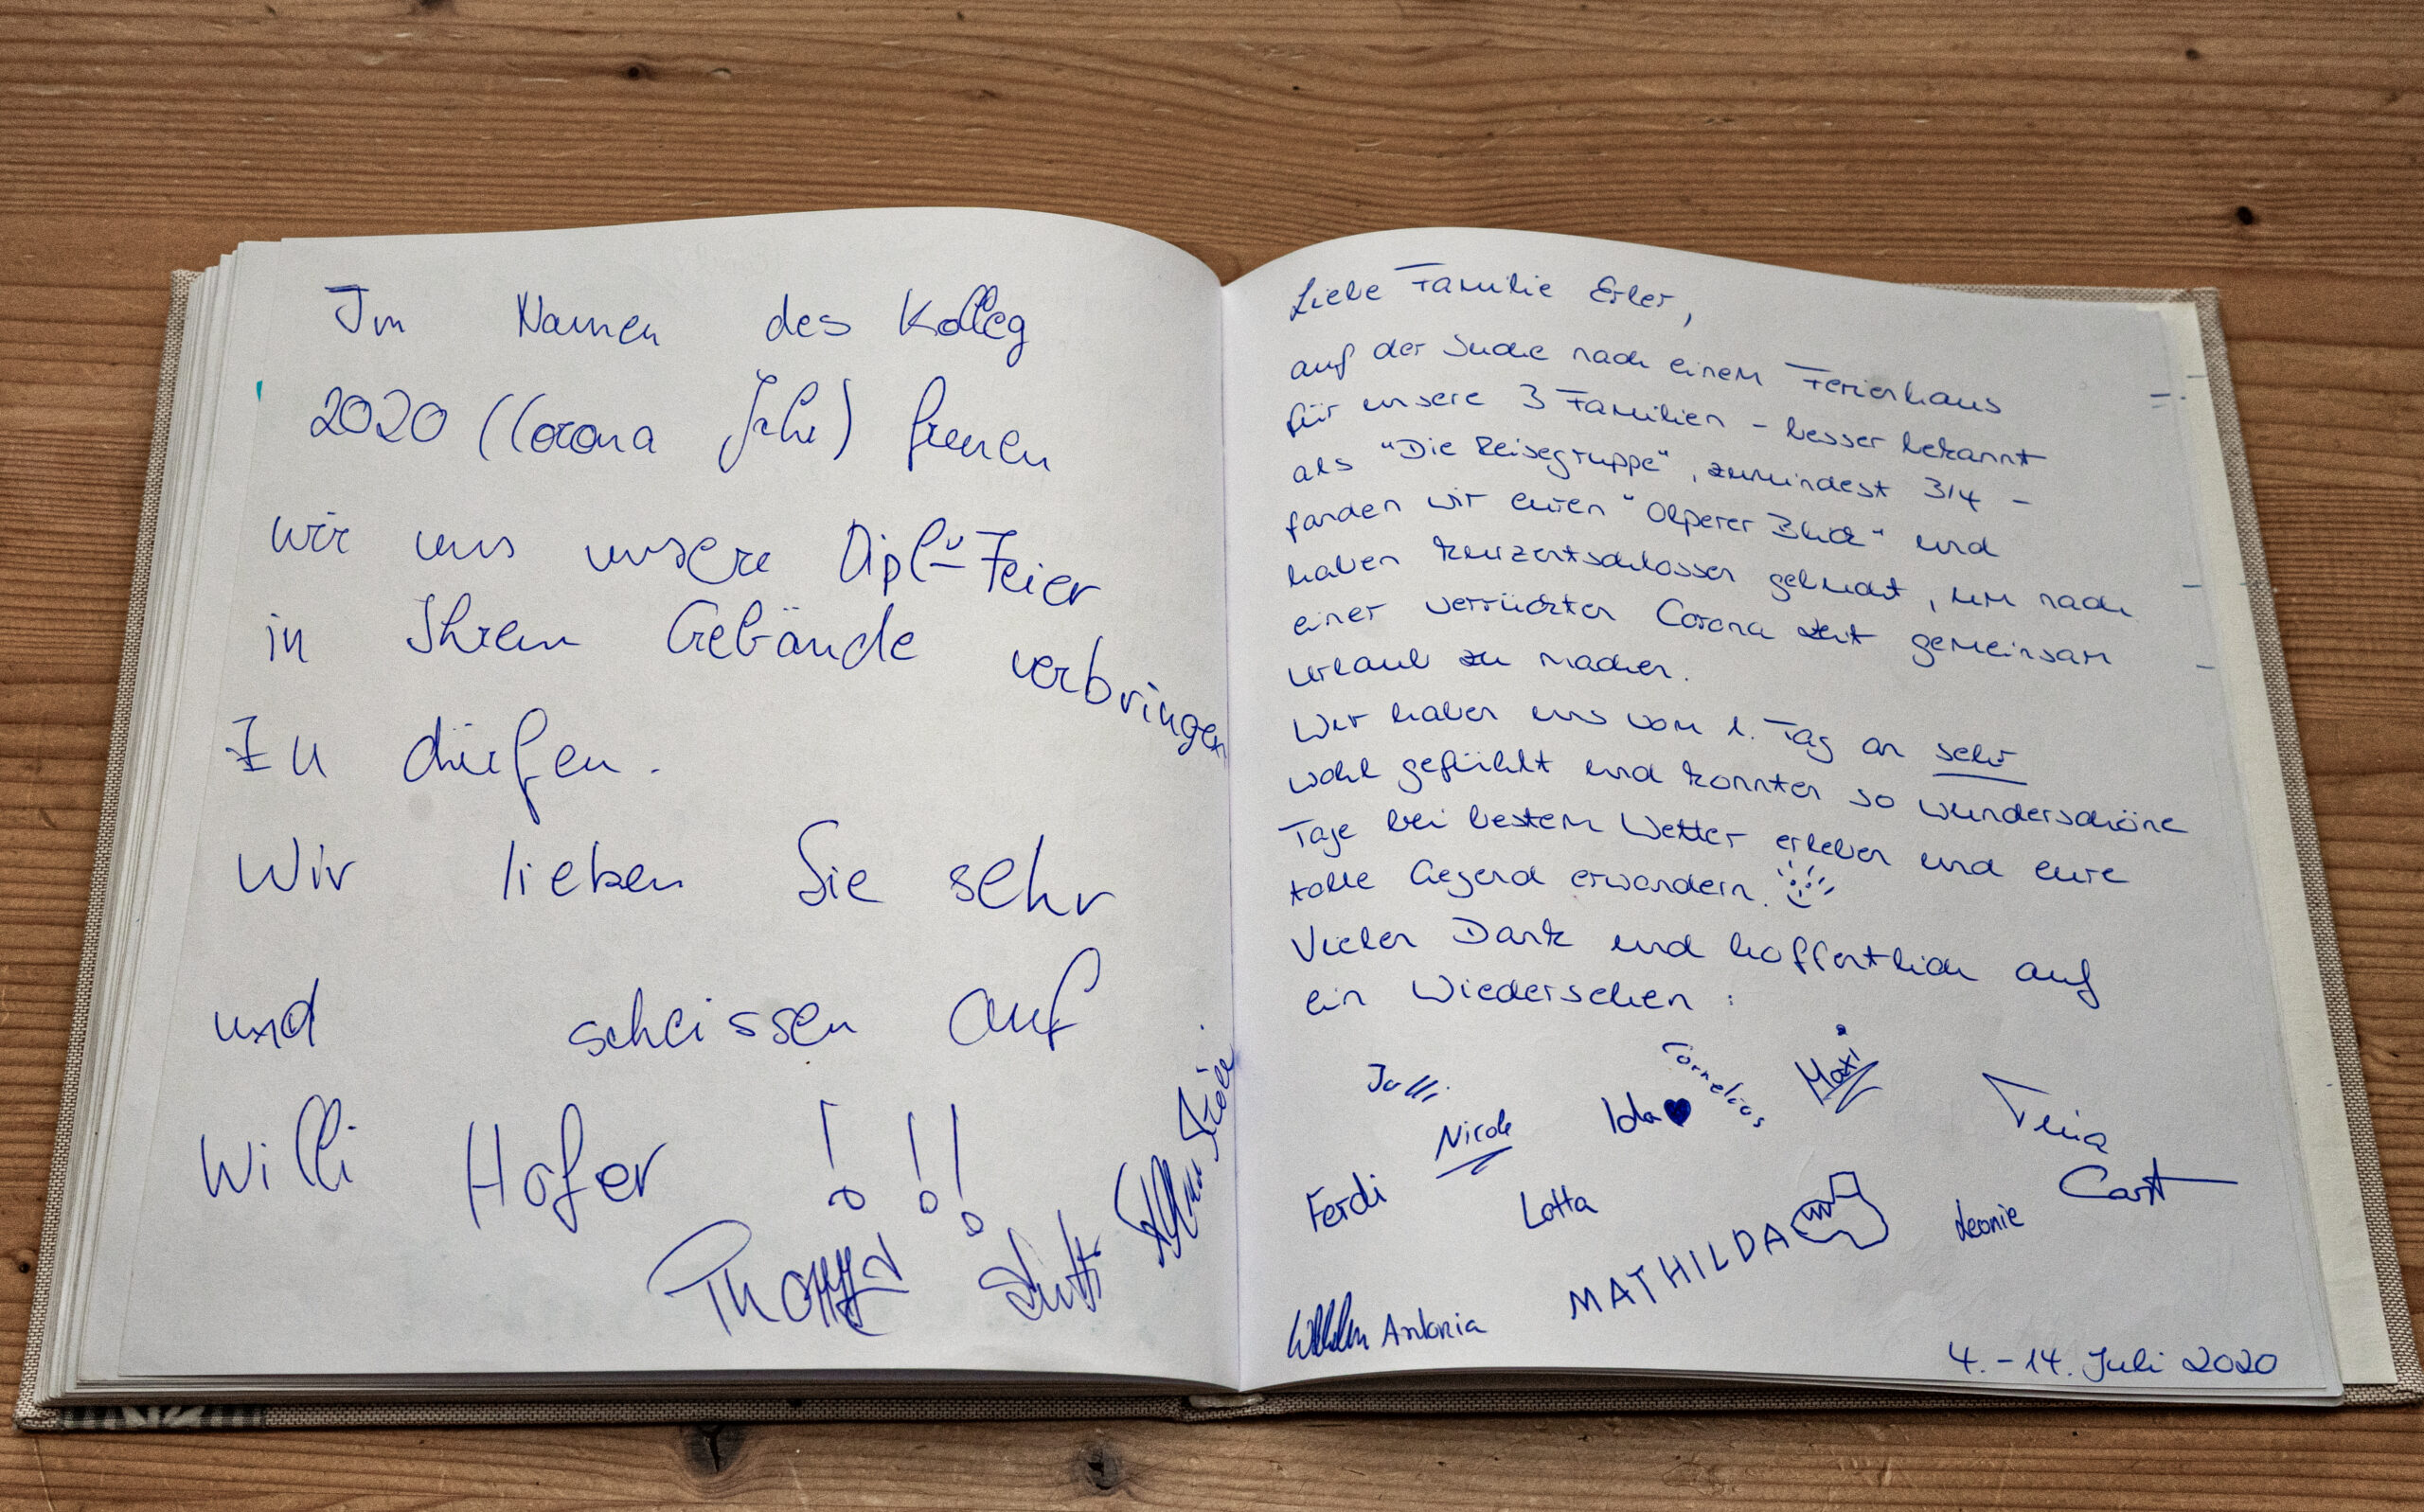 Im Namen des Kolleg
2020 (Corona Jahr) freuen
wir uns unsere Dipl.-Feier
in Ihrem Gebäude verbringen
zu dürfen.
Wir lieben Sie sehr
und scheissen auf
Willi Hofer !!!
Liebe Familie Erler,
auf der Suche nach einem Ferienhaus
für unsere 3 Familien - besser bekannt
als "Die Reisegruppe", zumindest 3/4 -
fanden wir euren "Olperer Blick" und
haben kurzentschlossen gebucht, um nach
einer verrückten Corona Zeit gemeinsam
Urlaub zu machen.
Wir haben uns vom 1. Tag an sehr
wohl gefühlt und konnten so wunderschöne
Tage bei bestem Wetter erleben und eure
tolle Gegend erwandern.
Vielen Dank und hoffentlich auf
ein Wiedersehen:
Julli Nicole Ida Cornelius Maxi Tina
Ferdi Lotta MATHILDA Leonie
Antonia
4.-14. Juli 2020